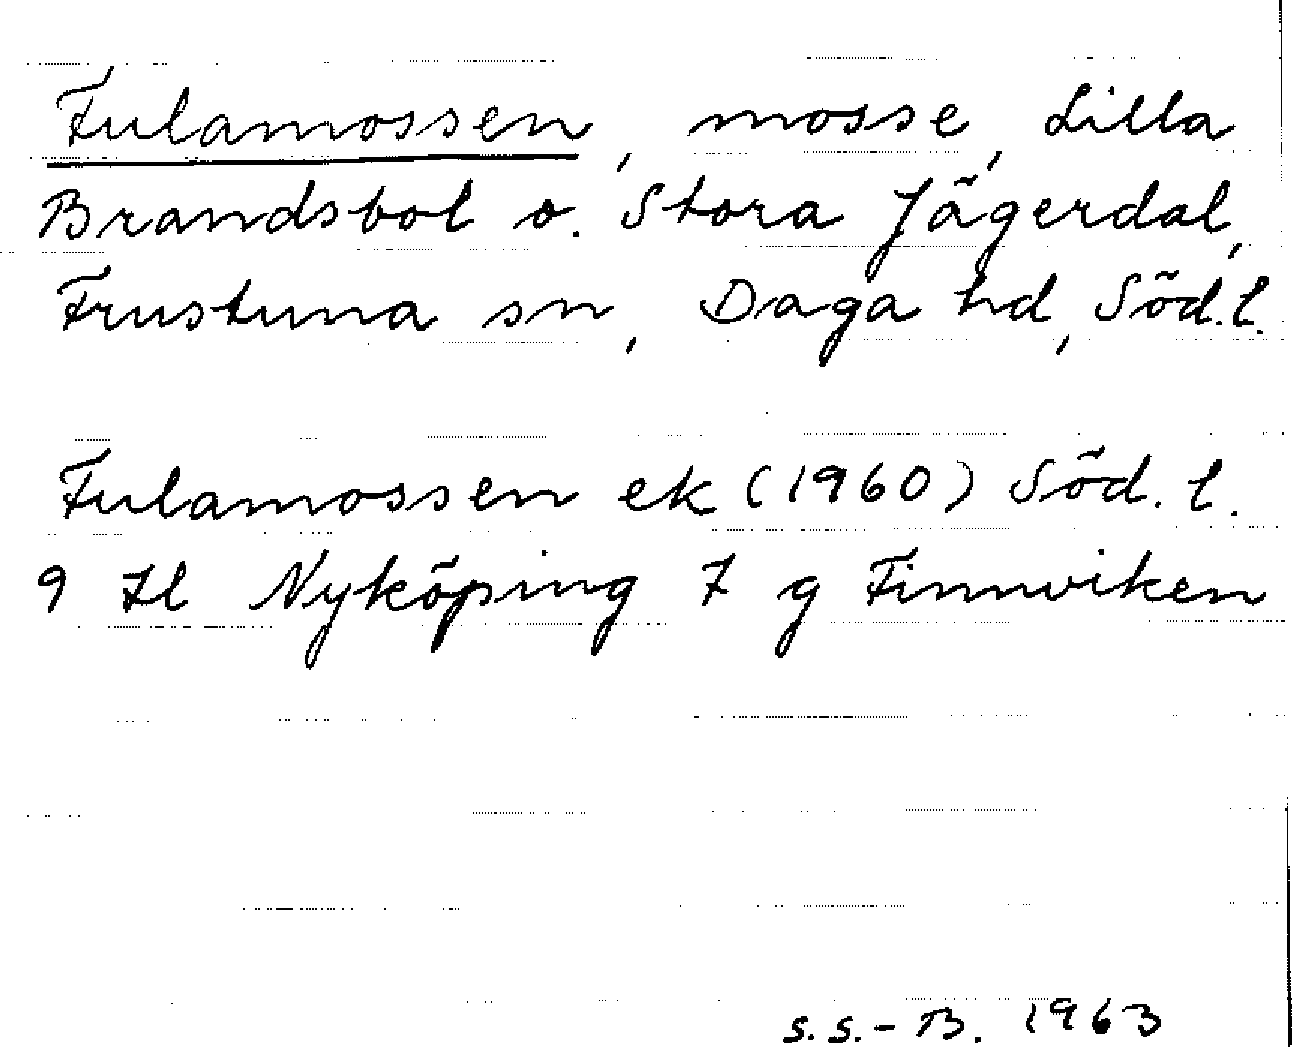 Fulamossen, mosse, Lilla
Brandsbol o. Stora Jägerdal,
Frustuna sn, Daga hd, Söd.l.
Fulamossen ek (1960) Söd. l.
9 H Nyköping 7 g Finnviken
S.S.-B. 1963